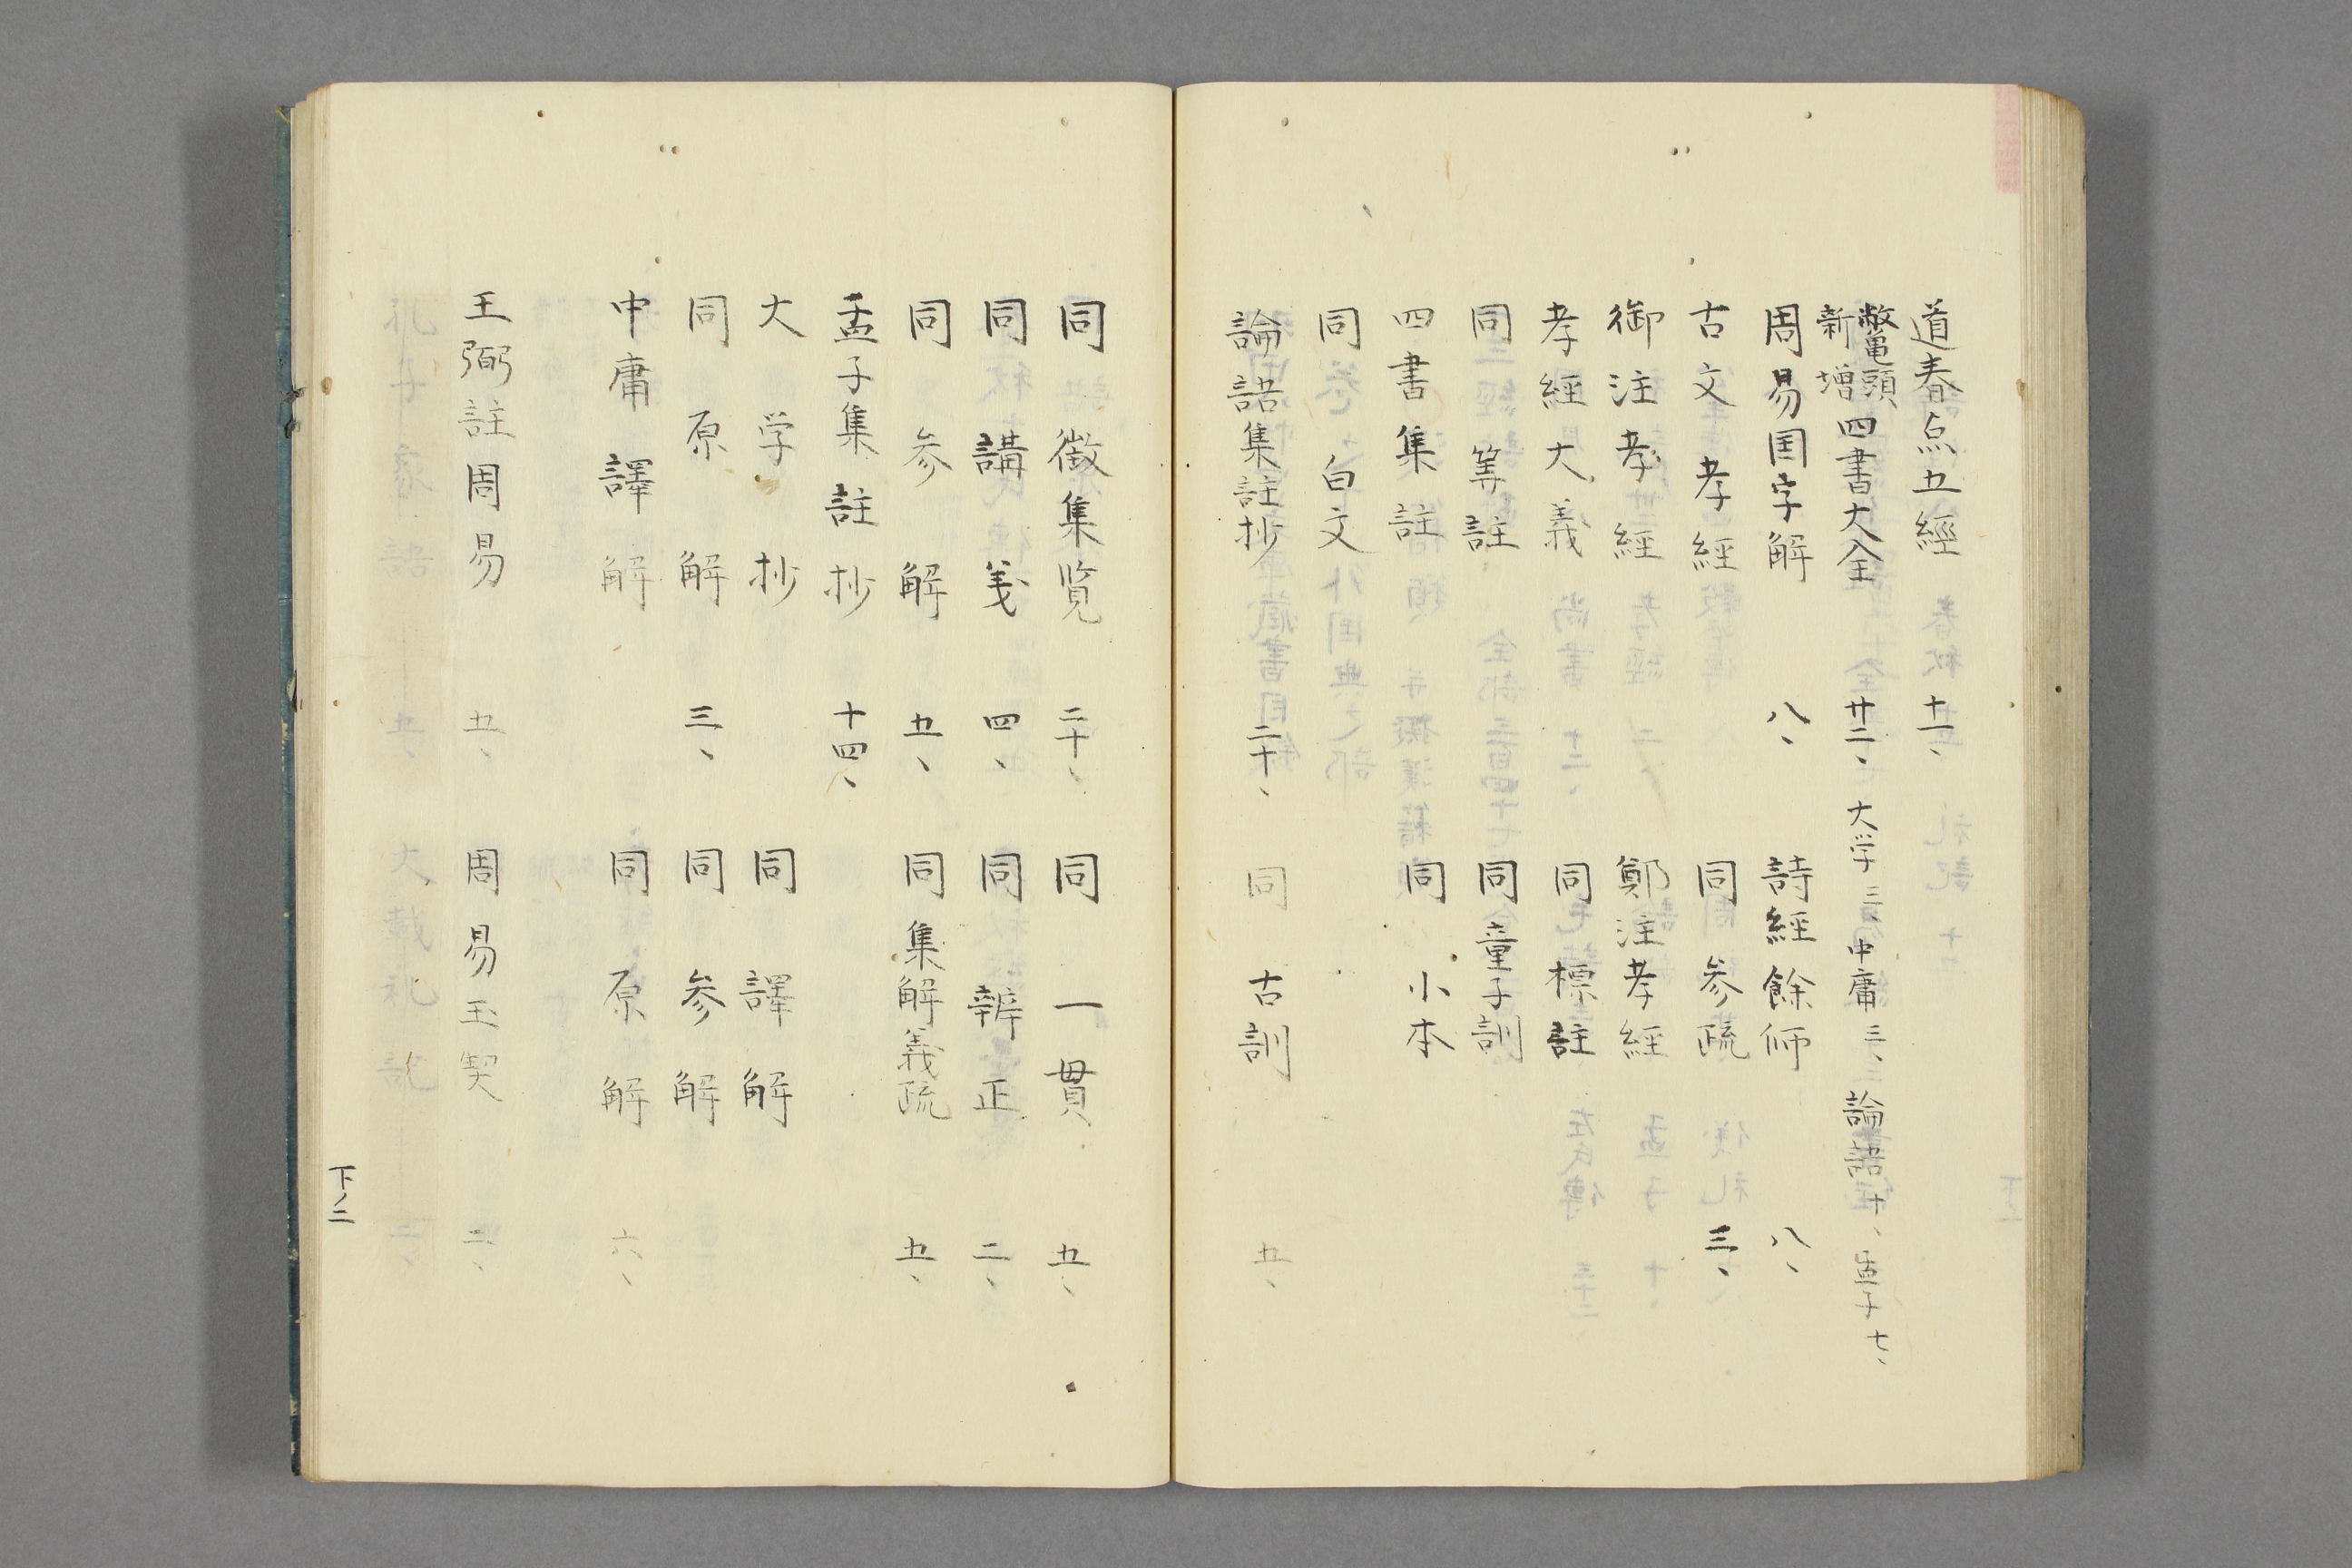 道春点五經　十一、
鼇頭新增四書大全　廿二、　大学三、中庸三、論語十、孟子七、
周易国字解　八、　詩經餘師　八、
古文孝經　同参疏　三、
御注孝經　鄭注孝經
孝經大義　同標註
同䓁註　同童子訓
四書集註　同小本
同白文
論語集註抄　二十、　同古訓　五、
同徴集覧　二十、　同一貫　五、
同講義　四、　同辨正　二、
同参解　五、　同集解義疏　五、
孟子集註抄　十四、
大学抄　同譯解
同原解　三、　同参解
中庸譯解　同原解　六、
王弼註周易　五、　周易玉契　二、
下ノ二